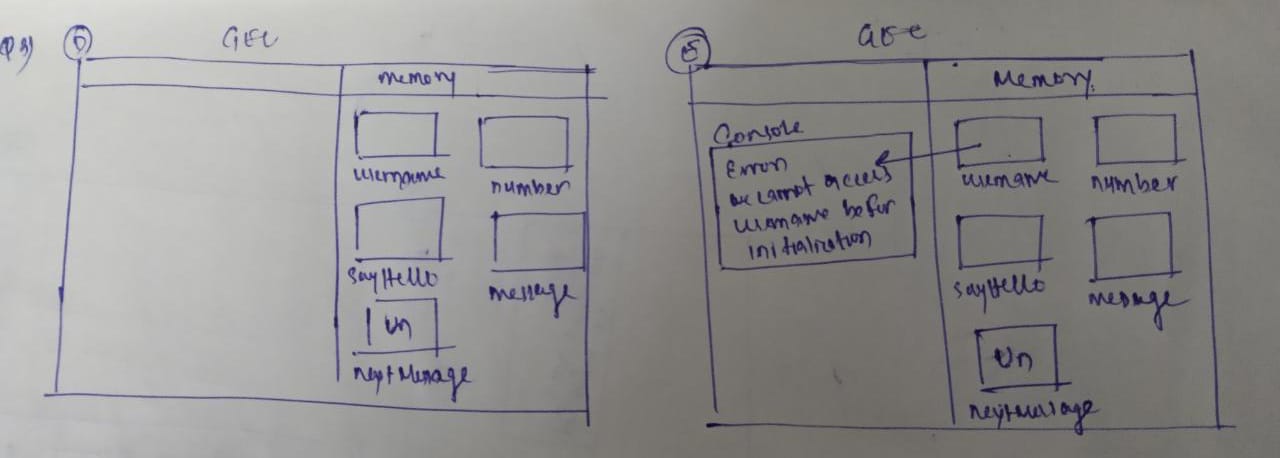 Q3)
GEC
Memory
username
number
SayHello
message
Un
nextMessage
5
GEC
Memory.
Console
Error
cannot access
username before
initialization
username
number
SayHello
message
Un
nextMessage